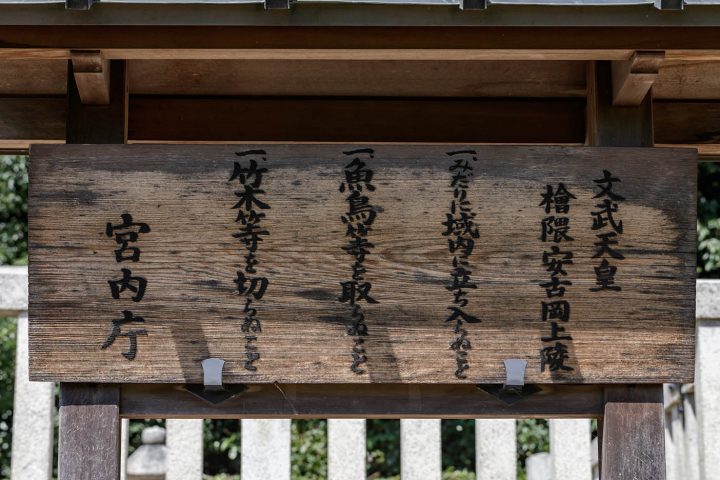 文武天皇
檜隈安古岡上陵
一、みだりに域内に立ち入らぬこと
一、魚鳥等を取らぬこと
一、竹木等を切らぬこと
宮内庁